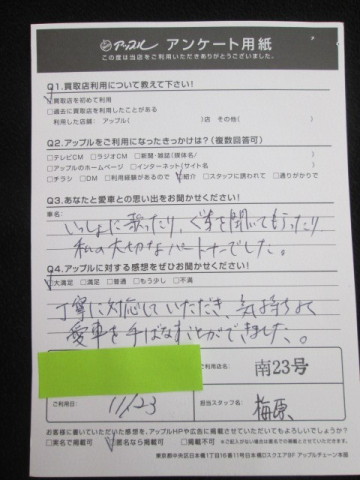 アップル アンケート用紙
この度は当店をご利用いただきありがとうございました。
Q1.買取店利用について教えて下さい!
買取店を初めて利用
□過去に買取店を利用したことがある
利用した店舗: アップル( )店 その他( )
Q2.アップルをご利用になったきっかけは?(複数回答可)
□テレビCM □ラジオCM □新聞・雑誌(媒体名/ )
□アップルのホームページ □インターネット(サイト名 )
□チラシ □DM □利用経験があるので □紹介 □スタッフに誘われて □通りがかりで
Q3.あなたと愛車との思い出をお聞かせください!
車名:
いっしょに歌ったり、ぐちを聞いてもらったり
私の大切なパートナーでした。
Q4.アップルに対する感想をぜひお聞かせください!
□大満足 □満足 □普通 □もう少し □不満
丁寧に対応していただき、気持ちよく
愛車を手ばなすことができました。
ご利用店名: 南23号
ご利用日: 11/23
担当スタッフ名: 梅原
お客様に書いていただいた感想を、アップルHPや広告に掲載させていただいてもよろしいでしょうか?
□実名で掲載可 □匿名なら掲載可 □掲載不可 ※ご記入がない場合は匿名で分掲載とさせていただきます。
東京都中央区日本橋1丁目16番11号日本橋DスクエアBF アップルチェーン本部